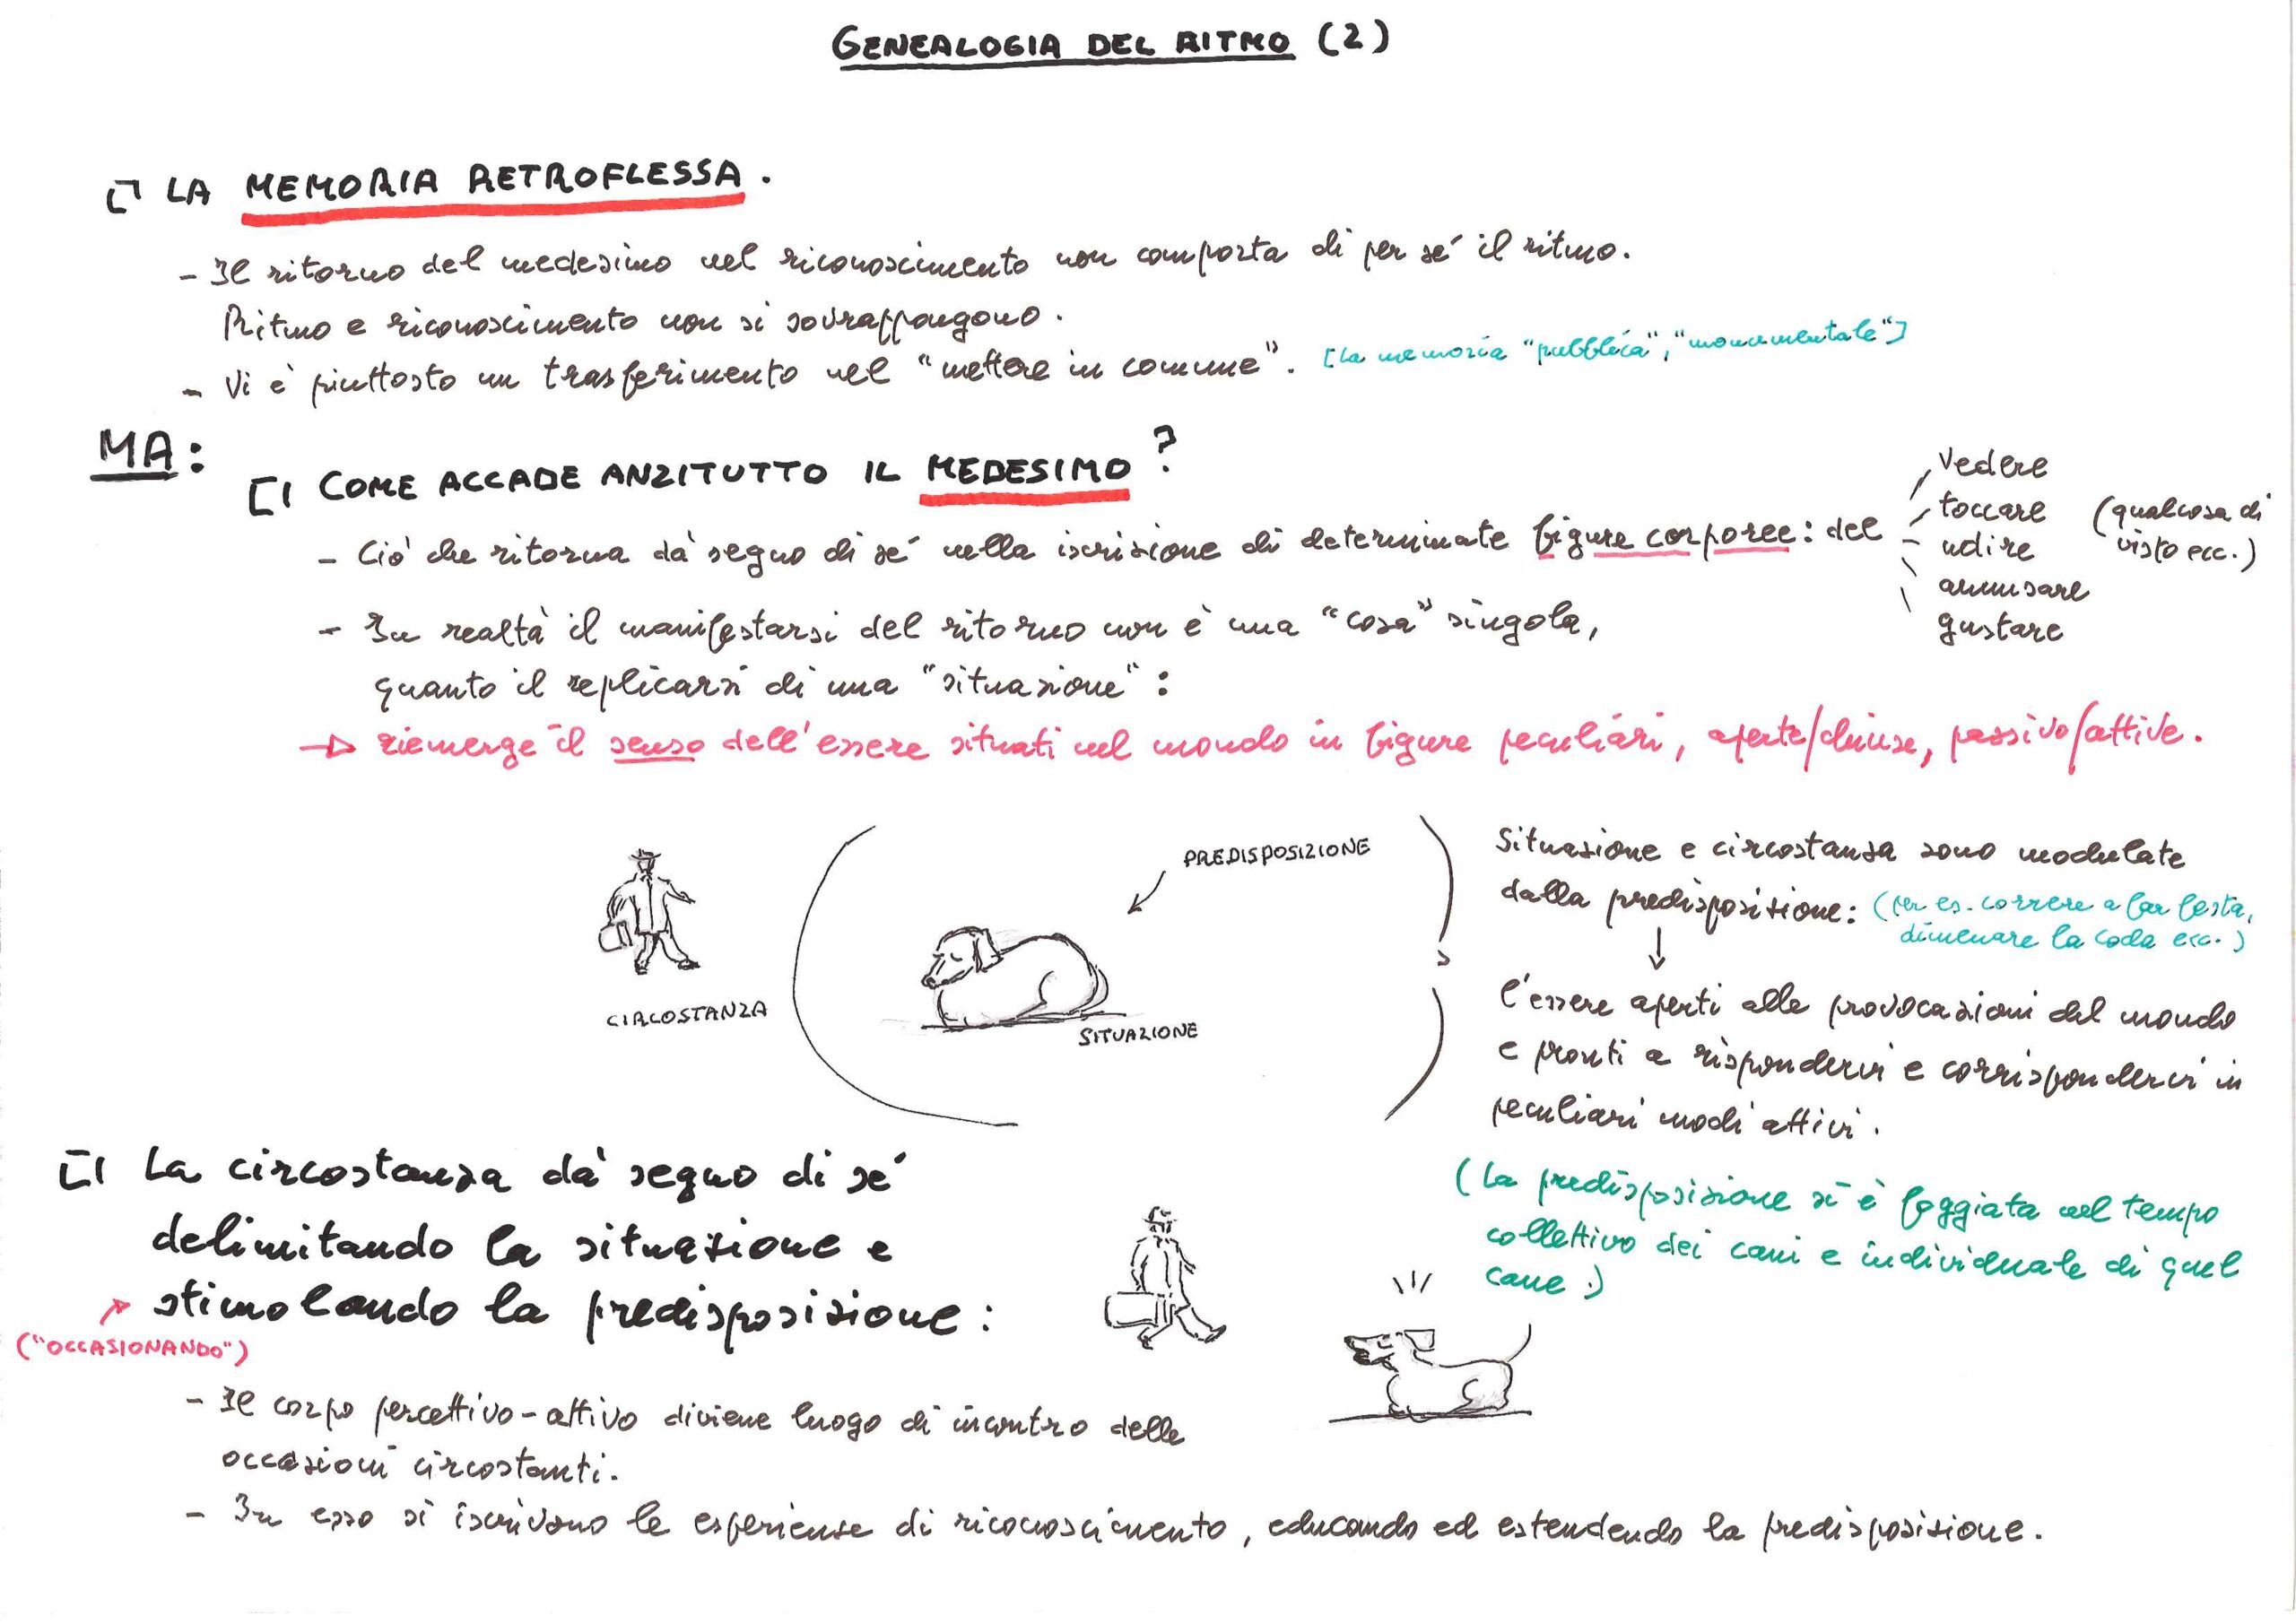 GENEALOGIA DEL RITMO (2)
LA MEMORIA RETROFLESSA.
- Il ritorno del medesimo nel riconoscimento non comporta di per sé il ritmo.
Ritmo e riconoscimento non si sovrappongono.
- Vi è piuttosto un trasferimento nel "mettere in comune". [la memoria "pubblica", "monumentale"]
MA:
COME ACCADE ANZITUTTO IL MEDESIMO?
- Ciò che ritorna dà segno di sé nella iscrizione di determinate figure corporee: del
vedere
toccare
udire
annusare
gustare
(qualcosa di
visto ecc.)
- In realtà il manifestarsi del ritorno non è una "cosa" singola,
quanto il replicarsi di una "situazione":
→ riemerge il senso dell'essere situati nel mondo in figure peculiari, aperte/chiuse, passivo/attive.
CIRCOSTANZA
PREDISPOSIZIONE
SITUAZIONE
Situazione e circostanza sono modulate
dalla predisposizione: (per es. correre a far festa,
dimenare la coda ecc.)
l'essere aperti alle provocazioni del mondo
e pronti a rispondervi e corrispondervi in
peculiari modi attivi.
(La predisposizione si è foggiata nel tempo
collettivo dei cani e individuale di quel
cane.)
La circostanza dà segno di sé
delimitando la situazione e
stimolando la predisposizione:
("OCCASIONANDO")
- Il corpo percettivo-attivo diviene luogo di incontro delle
occasioni circostanti.
- In esso si iscrivono le esperienze di riconoscimento, educando ed estendendo la predisposizione.